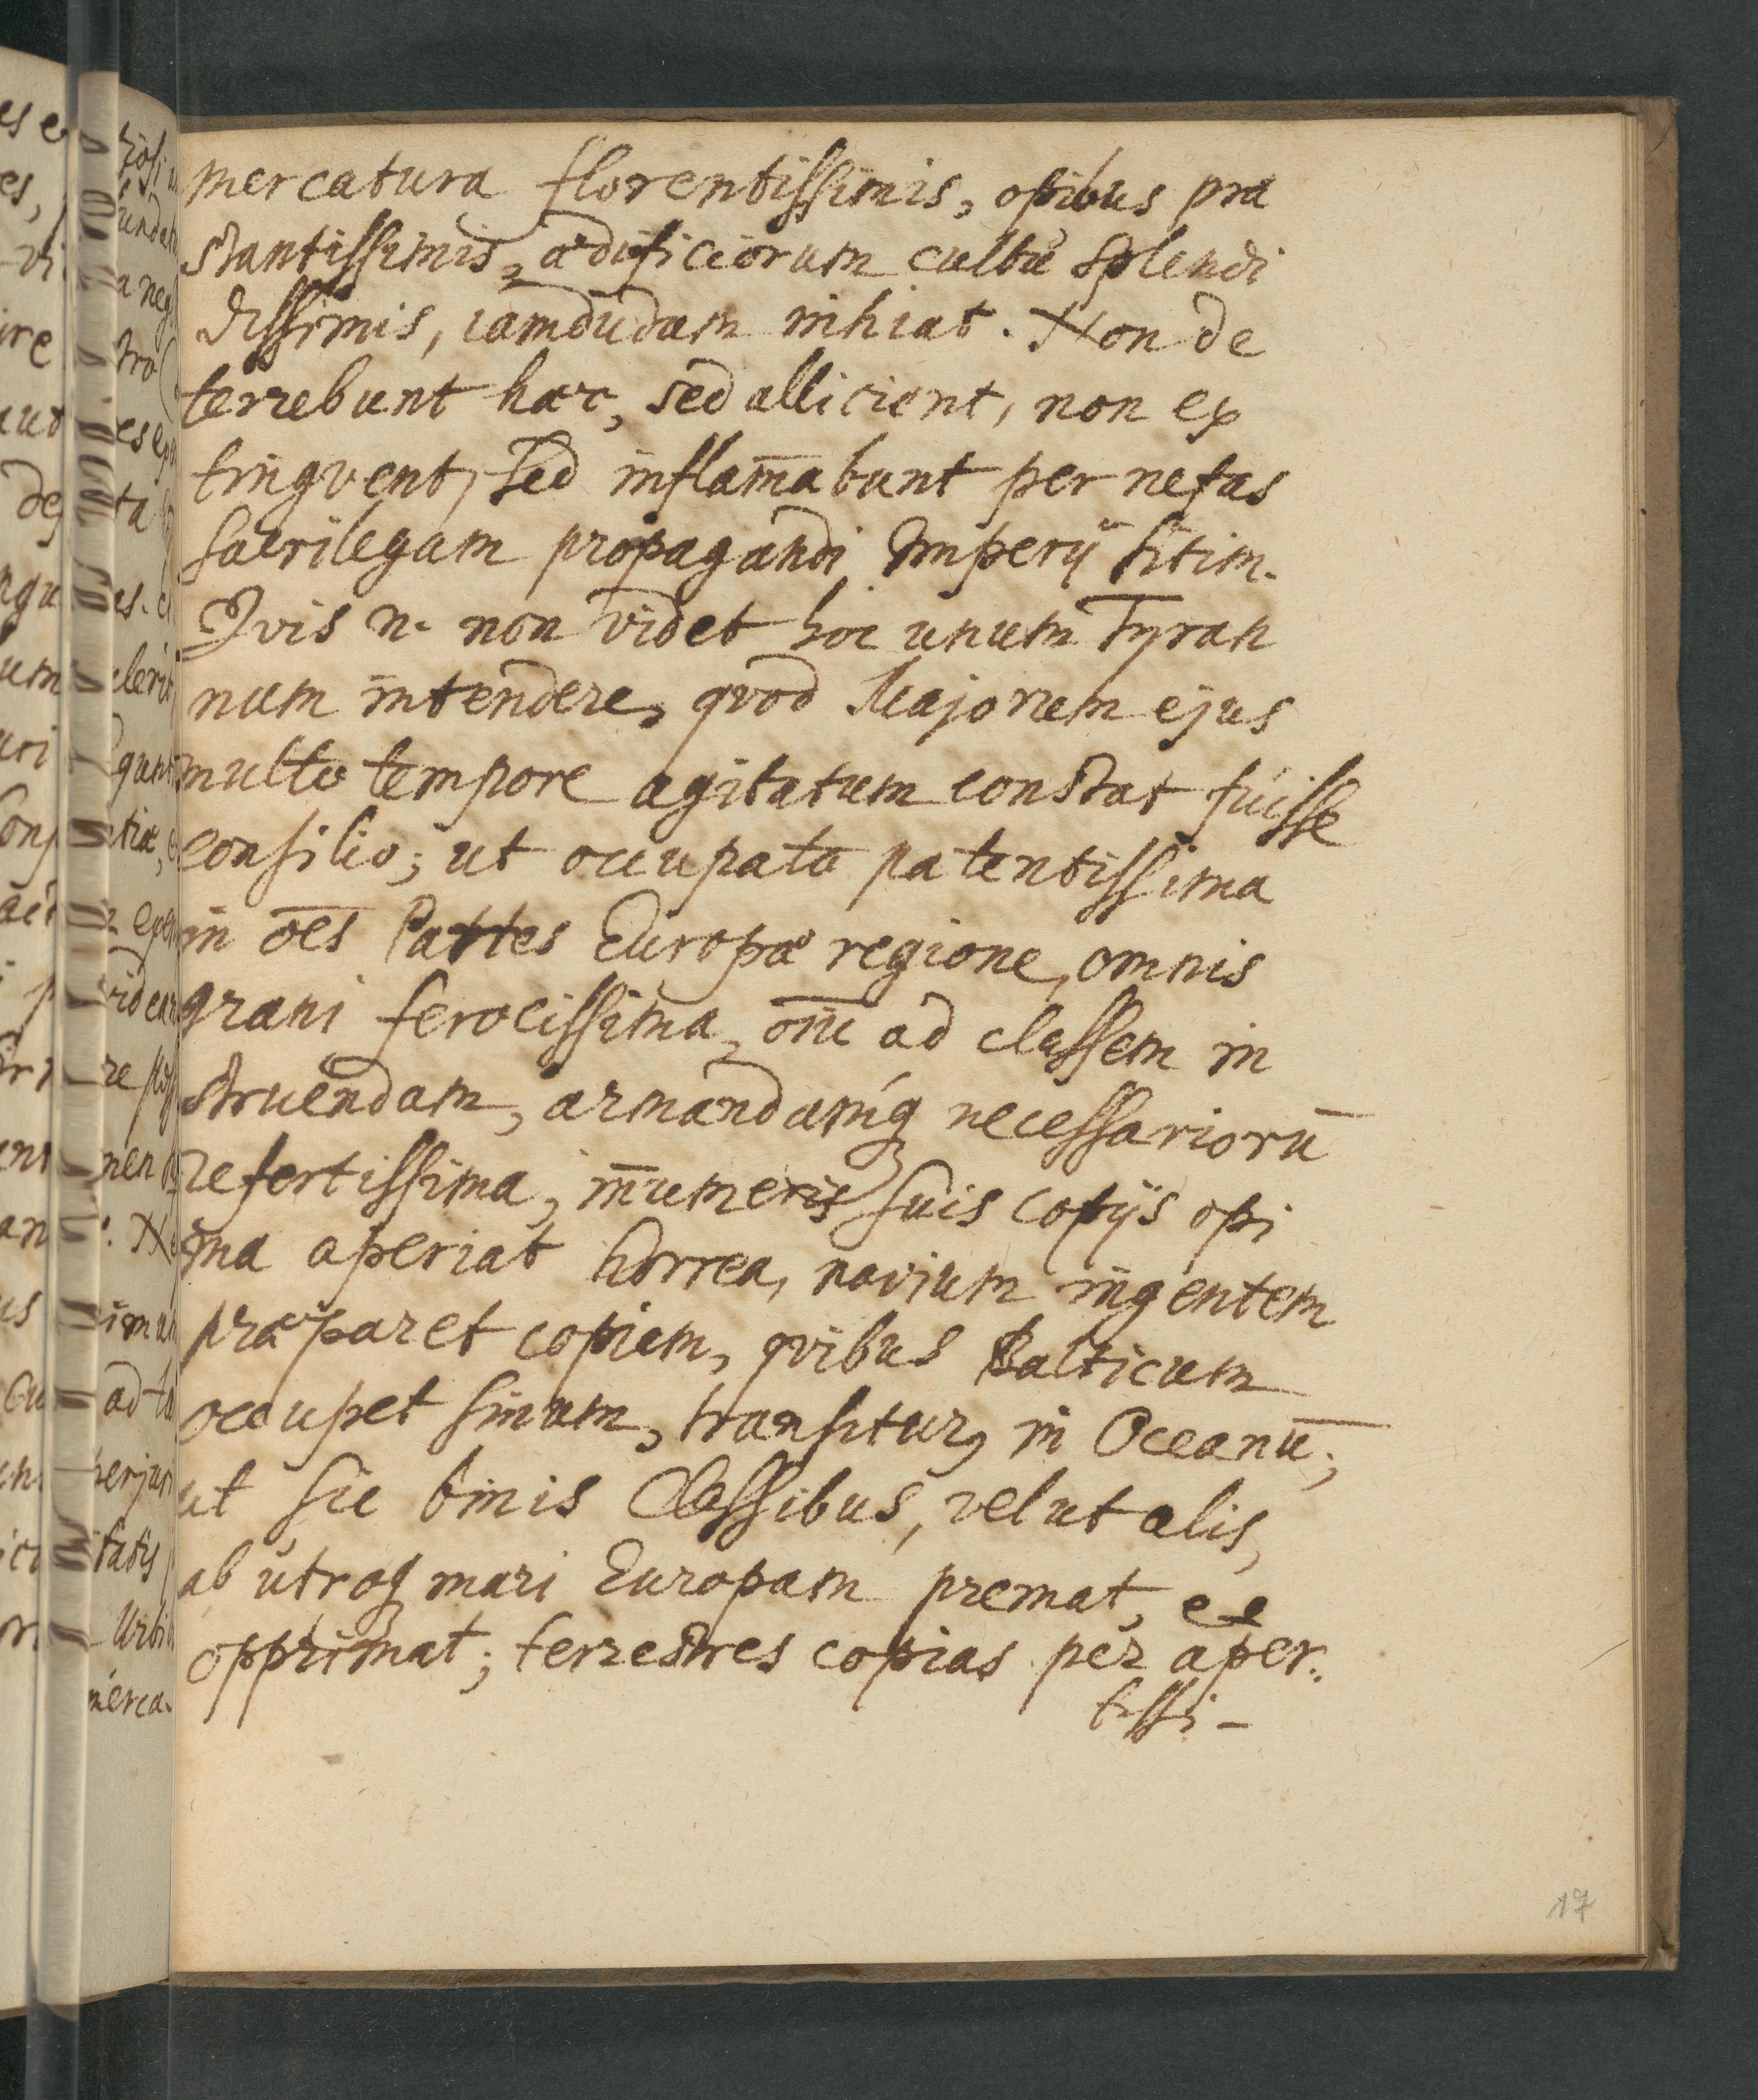 mercatura florentissimis, opibus præ
stantissimis, ædificiorum cultu splendi
dissimis, iamdudum inhiat. Non de
terrebunt hæc, sed allicient, non ex
tingvent, sed inflam̄abunt per nefas
sacrilegam propagandi Imperij sitim.
Qvis n. non videt hoc unum Tyran
num intendere, qvod Majorum ejus
multo tempore agitatum constat fuisse
consilio; ut occupata patentissima
in oēs Partes Europæ regione, omnis
grani ferocissima, om̄ ad classem in
struendam, armandamq́ necessariorū
refertissima, in̄umeris suis copijs opi
ma aperiat horrea, navium ingentem
præparet copiam, qvibus Balticum
occupet sinum, transiturq in Oceanū;
ut sic binis Classibus, velut alis,
ab utroq mari Europam premat, et
opprimat; terrestres copias per aper.
tissi-
17